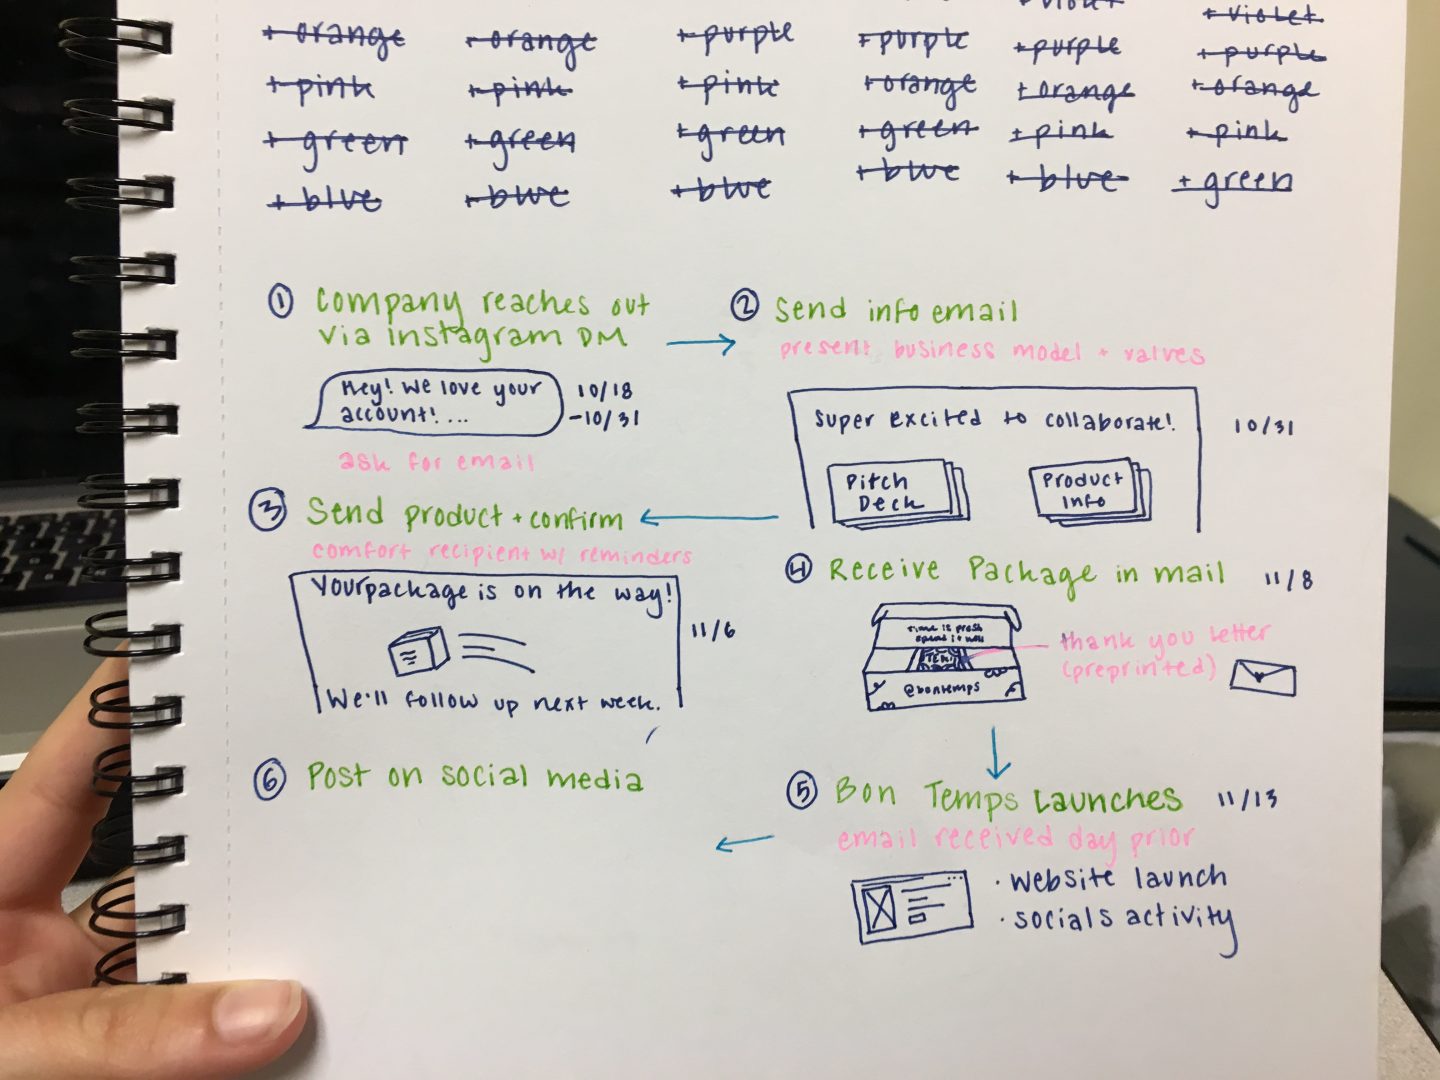 + orange + orange + purple + purple + violet + violet
+ pink + pink + pink + orange + purple + purple
+ green + green + green + green + orange + orange
+ blue + blue + blue + blue + pink + pink
+ blue + green
① Company reaches out
via instagram DM
Hey! We love your
account!...
10/18
-10/31
ask for email
② Send info email
present business model + values
Super excited to collaborate!
10/31
Pitch
Deck
Product
Info
③ Send product + confirm
comfort recipient w/ reminders
Your package is on the way!
11/6
We'll follow up next week.
④ Receive Package in mail 11/8
time is fresh
spend it well
@bontemps
thank you letter
(preprinted)
⑤ Bon Temps Launches 11/13
email received day prior
· website launch
· socials activity
⑥ Post on social media